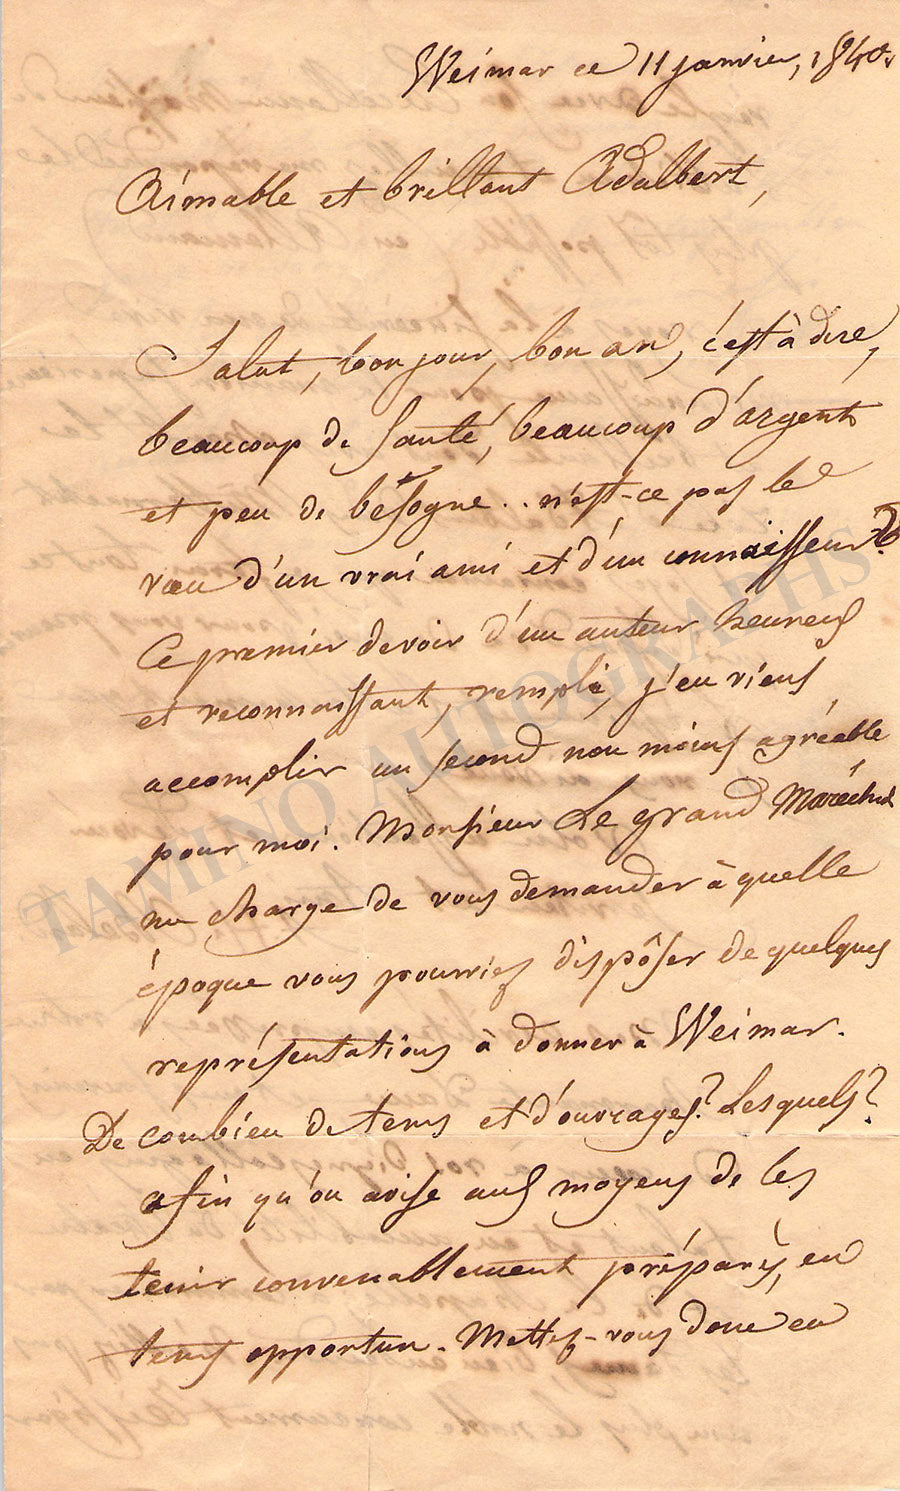 Weimar ce 11 janvier, 1840.
Aimable et brillant Adalbert,
Salut, bon jour, bon an, c'est à dire,
beaucoup de santé, beaucoup d'argent
et peu de bésogne.. n'est-ce pas le
vœu d'un vrai ami et d'un connaisseur?
Ce premier devoir d'un auteur heureux
et reconnaissant, rempli, j'en viens
accomplir un second non moins agréable
pour moi. Monsieur Le grand Maréchal
me charge de vous demander à quelle
époque vous pourriez dispôser de quelques
représentations à donner à Weimar.
De combien de tems et d'ouvrages? Lesquels?
afin qu'on avise aux moyens de les
tenir convenablement préparés, en
tems opportun. Mettez-vous donc en
TAMINO AUTOGRAPHS